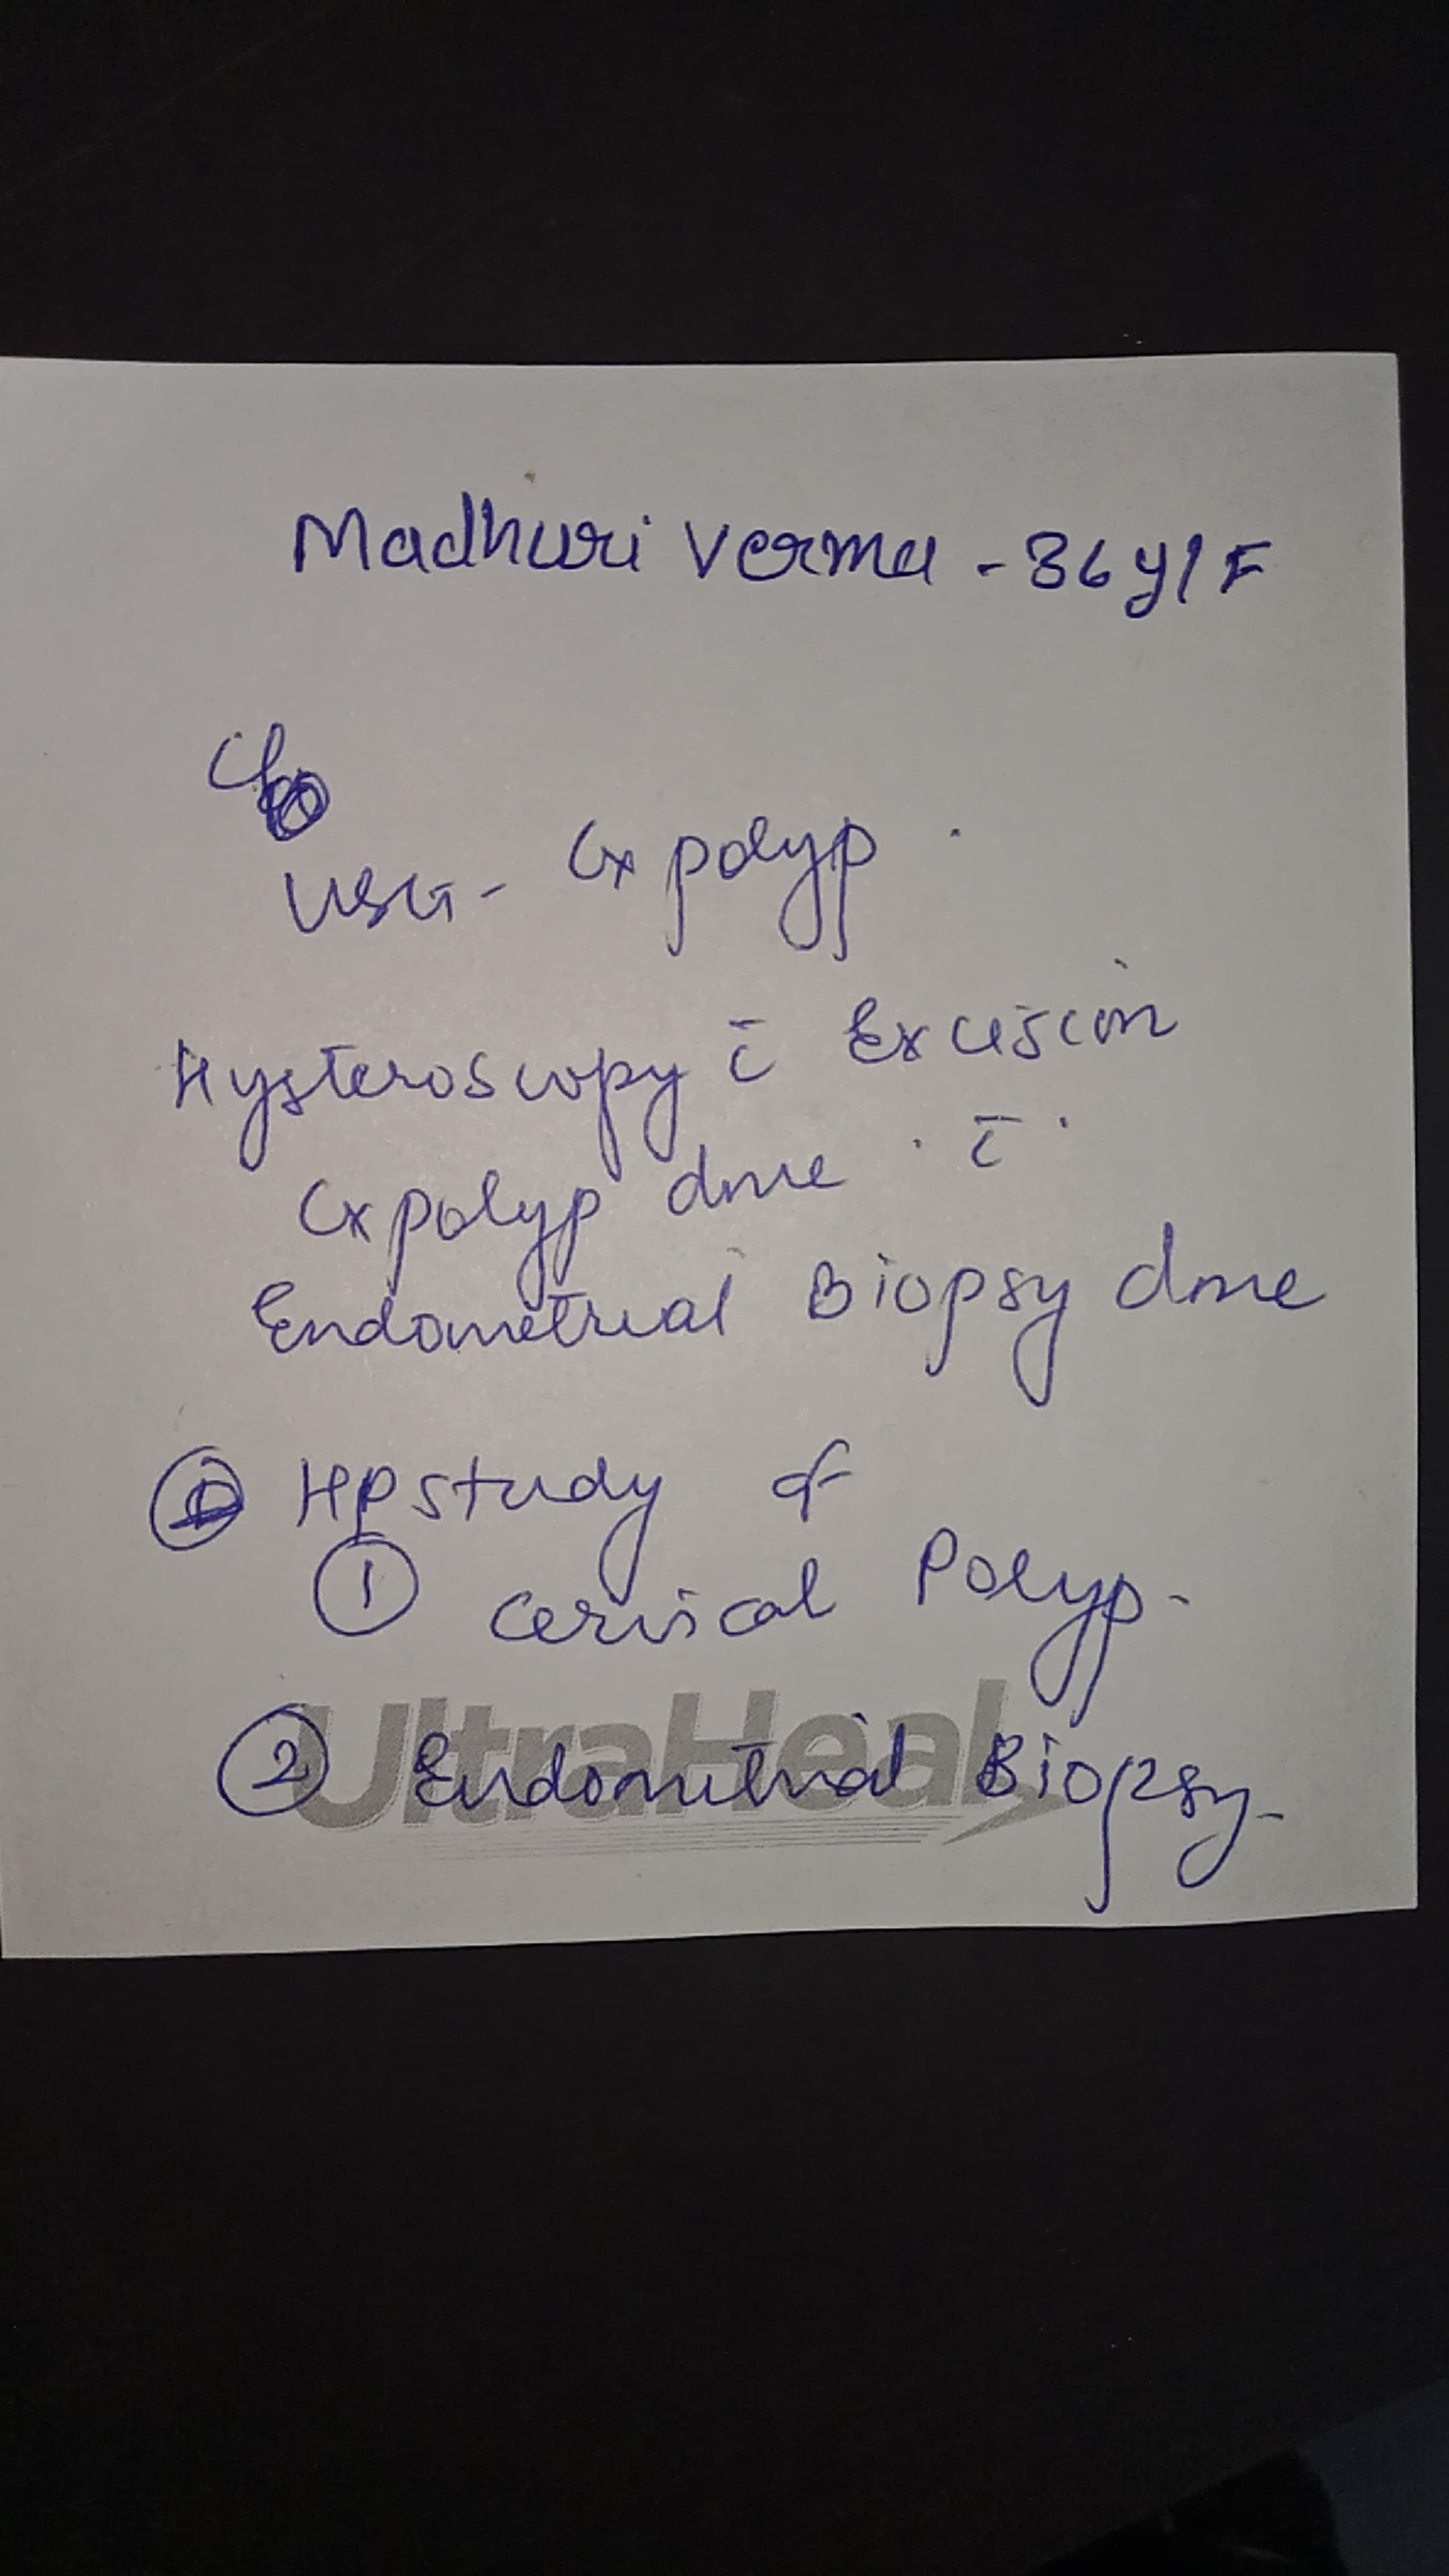 Madhuri Verma - 36y/F
C/o
USG - Cx polyp .
Hysteroscopy c̄ Excision
Cx polyp done . c̄ .
Endometrial Biopsy done
HP study of
① Cervical Polyp -
② Endometrial Biopsy -
UltraHeal